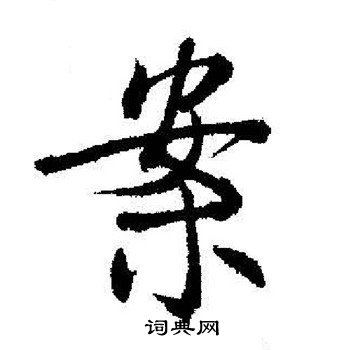 案
词典网